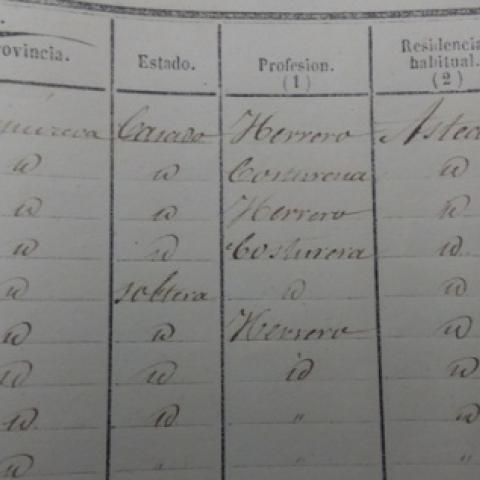 rovincia. Estado. Profesion. (1) Residencia habitual. (2)
Casado Herrero Aste
id id Costurera id
id id Herrero id
id id Costurera id
id soltera id id
id id Herrero id
id id id id
id id " id
id " " "